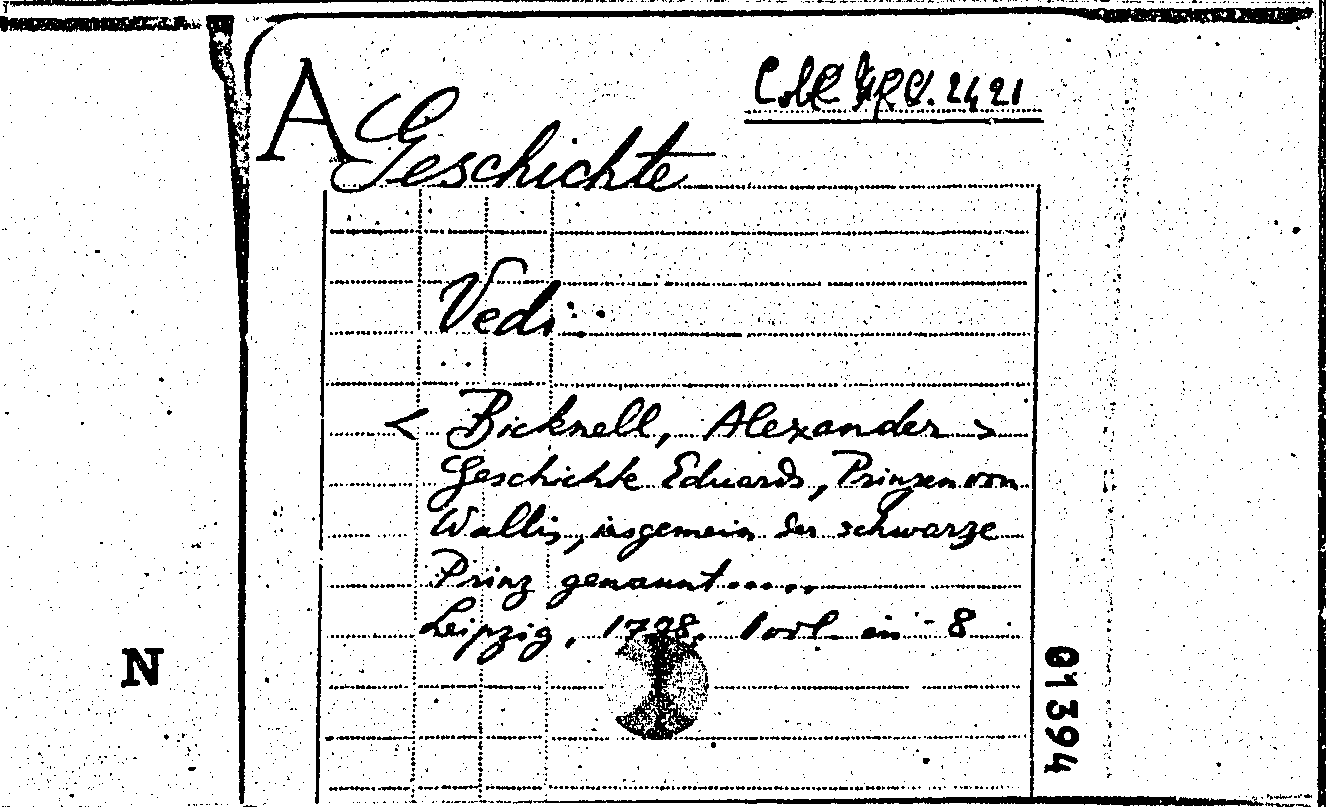 A
Geschichte
Vedi:
< Bicknell, Alexander >
Geschichte Eduards, Prinzen von
Wallis, insgemein der schwarze
Prinz genannt.....
Leipzig, 1798. 1 vol. in-8
N
01394